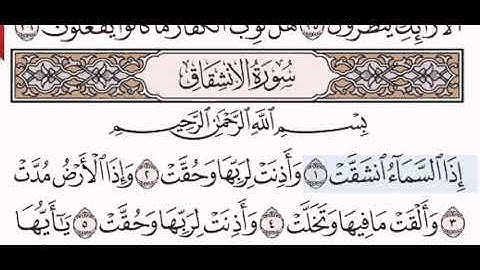 ٱلْأَرَآئِكِ يَنظُرُونَ ٣٥ هَلْ ثُوِّبَ ٱلْكُفَّارُ مَا كَانُوا۟ يَفْعَلُونَ ٣٦
سُورَةُ الانْشِقَاقِ
بِسْمِ ٱللَّهِ ٱلرَّحْمَٰنِ ٱلرَّحِيمِ
إِذَا ٱلسَّمَآءُ ٱنشَقَّتْ ١ وَأَذِنَتْ لِرَبِّهَا وَحُقَّتْ ٢ وَإِذَا ٱلْأَرْضُ مُدَّتْ
٣ وَأَلْقَتْ مَا فِيهَا وَتَخَلَّتْ ٤ وَأَذِنَتْ لِرَبِّهَا وَحُقَّتْ ٥ يَٰٓأَيُّهَا